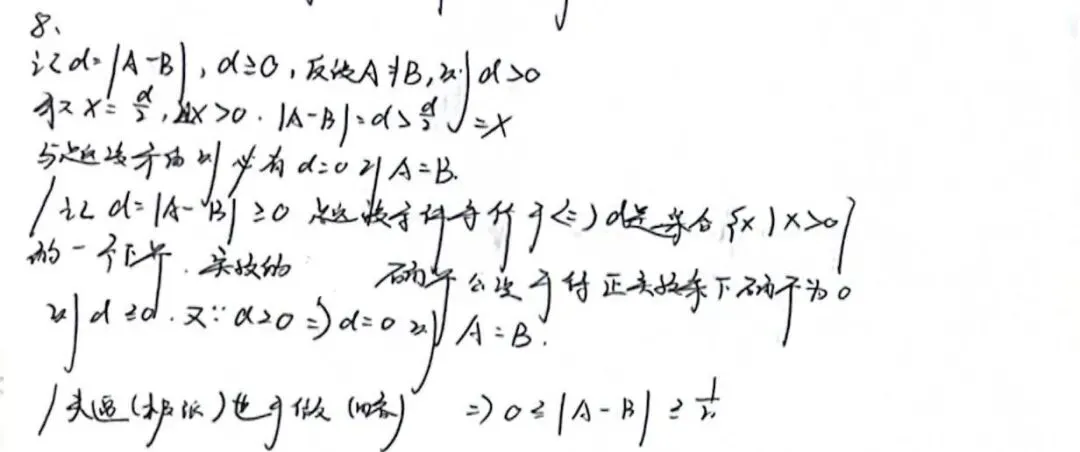 8、
记 d=|A-B|, d≥0, 反设A≠B, 则 d>0
取 X=d/2, 则X>0. |A-B|=d>d/2=X
与 矛盾 则 必有 d=0 则 A=B.
/记 d=|A-B|≥0 条件等价于<=> d是集合{x|x>0}
的一个下界. 实数的 确界公设可得正实数集下确界为0
则 d≤0. 又∵d≥0 => d=0 则 A=B.
/夹逼(极限)也可做(略) => 0≤|A-B|≤1/n